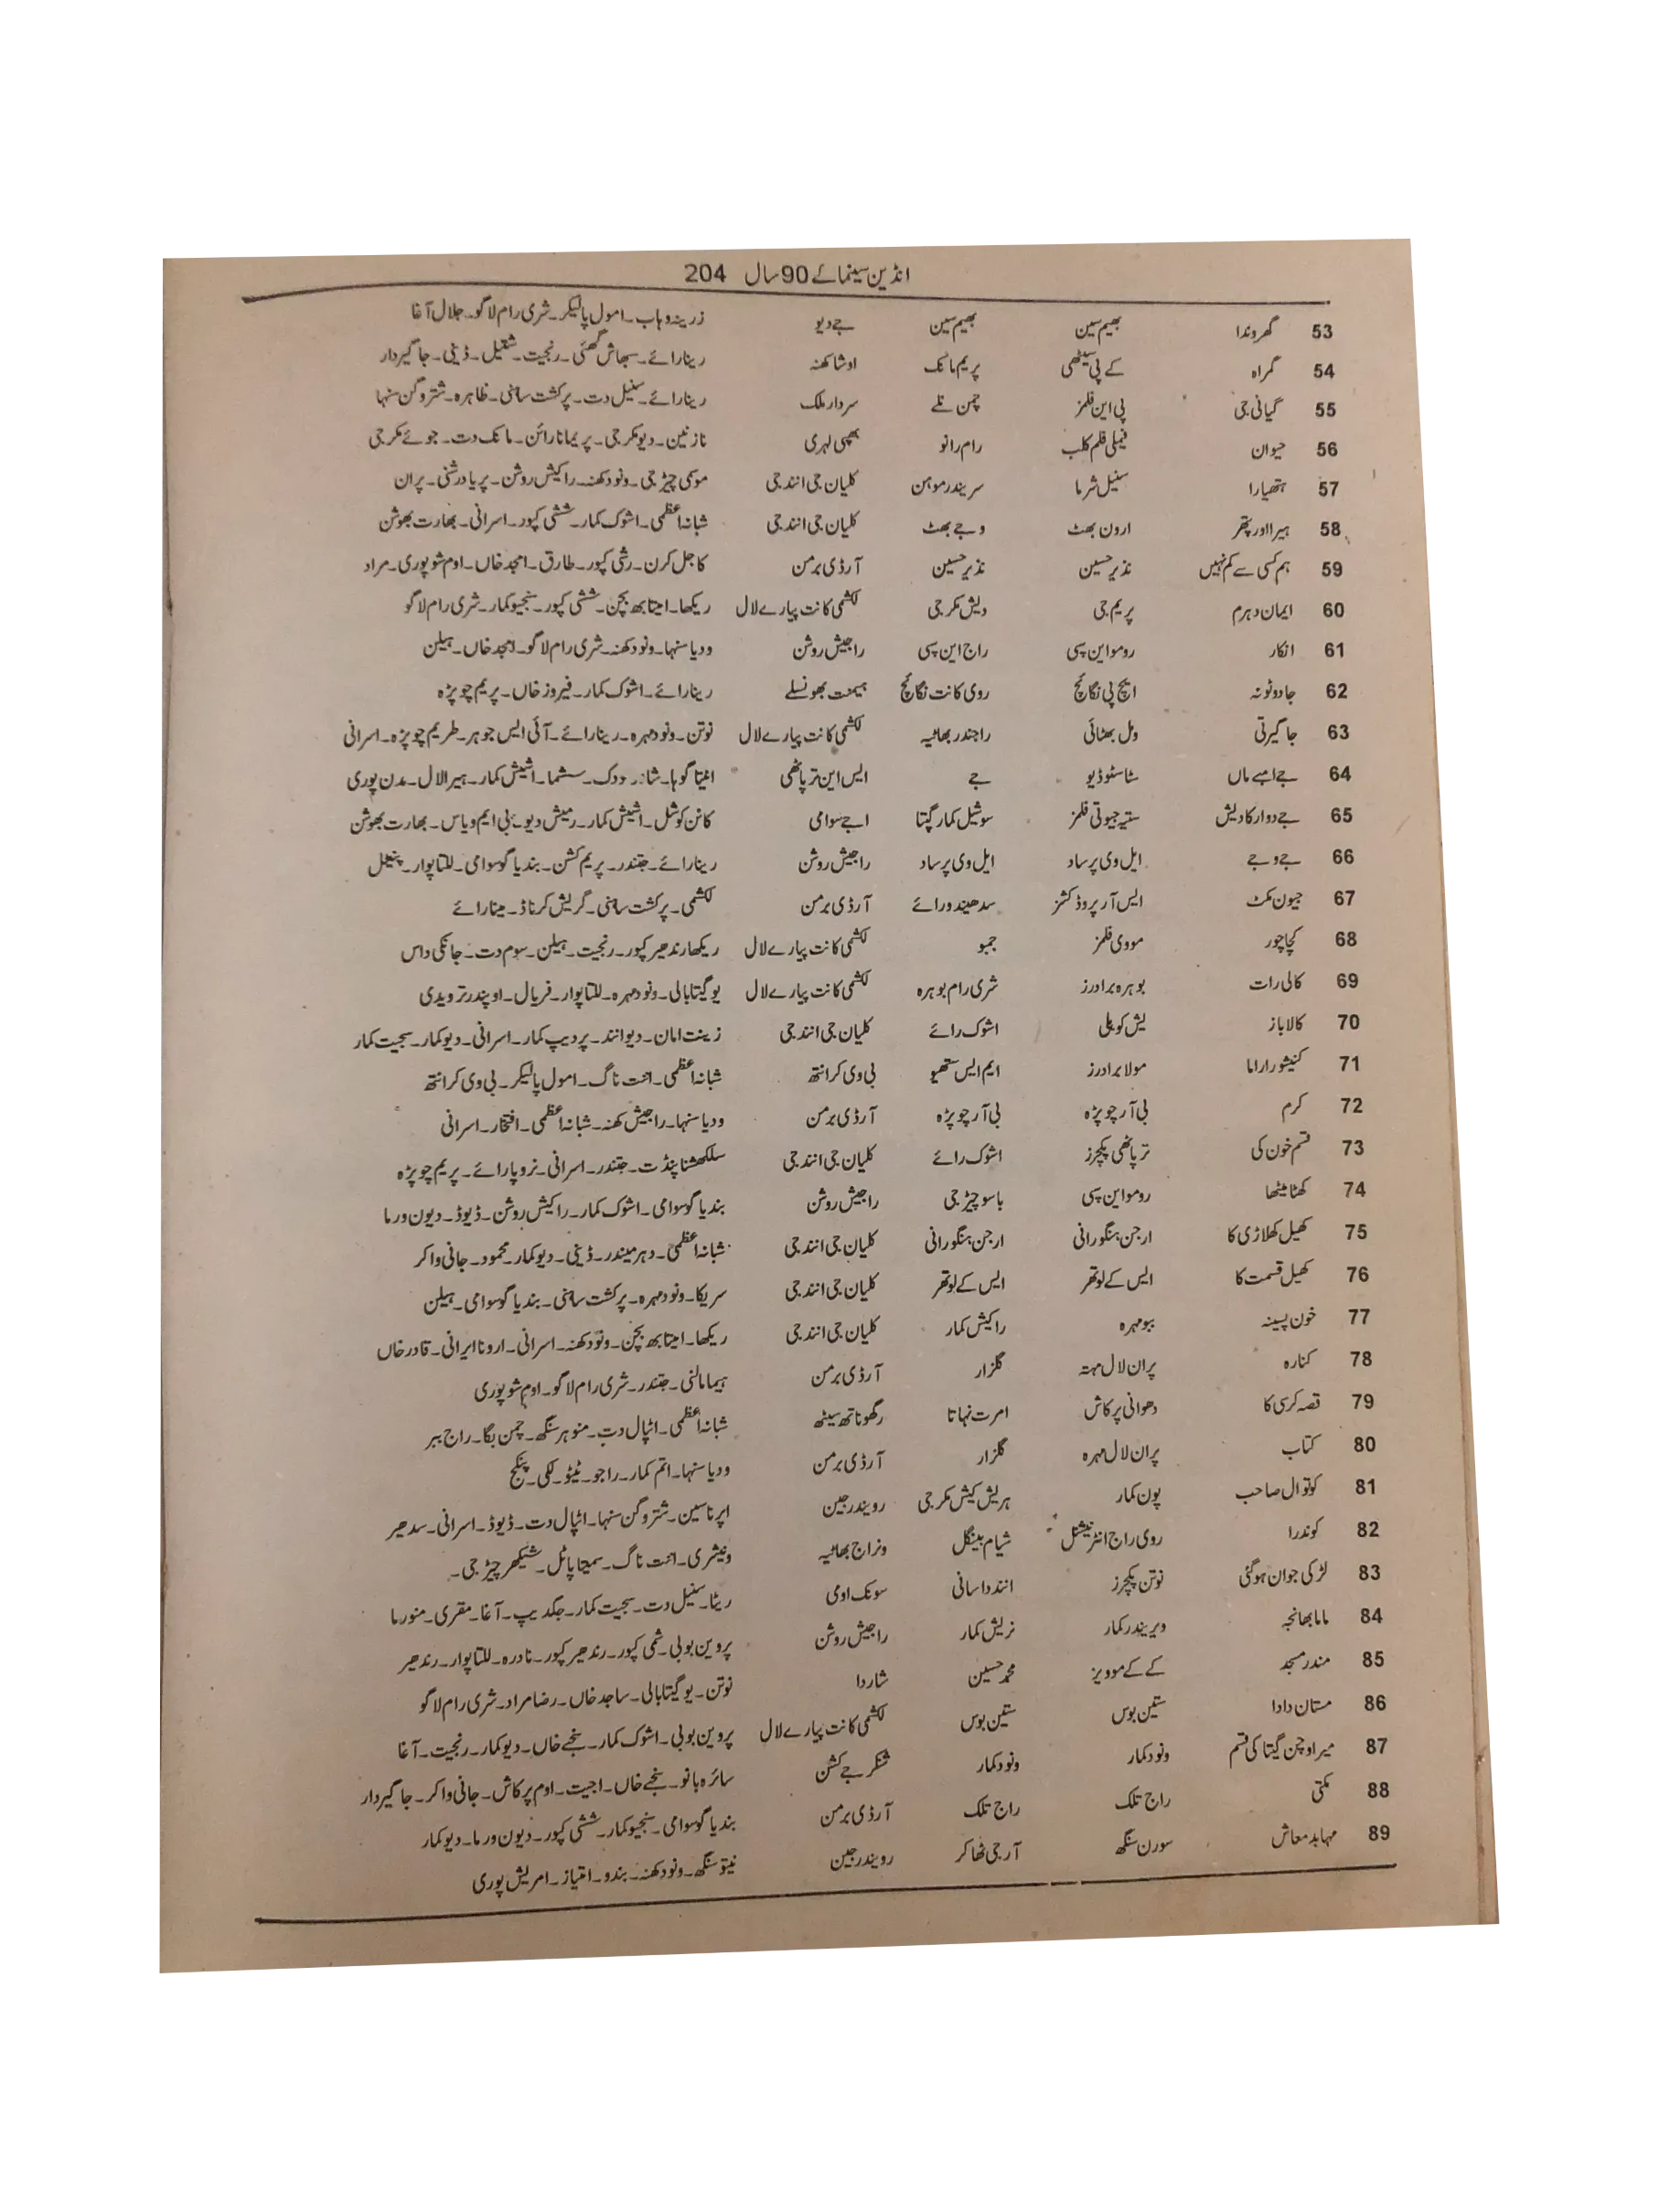 انڈین سینما کے 90 سال 204
53 گھروندا بھیم سین بھیم سین جے دیو زرینہ وہاب۔ امول پالیکر۔ شری رام لاگو۔ جلال آغا
54 گمراہ کے پی سیٹھی پریم مانک اوشا کھنہ رینا رائے۔ سبھاش گھئی۔ رنجیت۔ شتیل۔ ڈینی۔ جاگیردار
55 گیانی جی پی این فلمز چمن نلے سردار ملک رینا رائے۔ سنیل دت۔ پرکشت ساہنی۔ ظاہرہ۔ شتروگن سنہا
56 حیوان فیملی فلم کلب رام رانو بھپی لہری نازنین۔ دیو مکرجی۔ پریما نارائن۔ مانک دت۔ جوئے مکرجی
57 ہتھیارا سنیل شرما سریندر موہن کلیان جی انند جی موسمی چیڑجی۔ ونود کھنہ۔ راکیش روشن۔ پریا درشنی۔ پران
58 ہیرا اور پتھر ارون بھٹ وجے بھٹ کلیان جی انند جی شبانہ اعظمی۔ اشوک کمار۔ ششی کپور۔ اسرانی۔ بھارت بھوشن
59 ہم کسی سے کم نہیں نذیر حسین نذیر حسین آر ڈی برمن کاجل کرن۔ رشی کپور۔ طارق۔ امجد خاں۔ اوم شوپوری۔ مراد
60 ایمان دہرم پریم جی دیش مکرجی لکشمی کانت پیارے لال ریکھا۔ امیتابھ بچن۔ ششی کپور۔ سنجیو کمار۔ شری رام لاگو
61 انکار رومو این سپی راج این سپی راجیش روشن ودیا سنہا۔ ونود کھنہ۔ شری رام لاگو۔ امجد خاں۔ ہیلن
62 جادو ٹونہ ایچ پی نگائچ روی کانت نگائچ ہیمنت بھونسلے رینا رائے۔ اشوک کمار۔ فیروز خاں۔ پریم چوپڑہ
63 جاگیرتی ومل بھٹائی راجندر بھاٹیہ لکشمی کانت پیارے لال نوتن۔ ونود مہرہ۔ رینا رائے۔ آئی ایس جوہر۔ طریم چوپڑہ۔ اسرانی
64 جے امبے ماں سٹوڈیو جے ایس این ترپاٹھی انیتا گوہا۔ سشما۔ اشیش کمار۔ ہیرا لال۔ مدن پوری
65 جے دوارکا دیش ستیہ جیوتی فلمز سوشیل کمار گپتا اجے سوامی کانن کوشل۔ اشیش کمار۔ رمیش دیو۔ بی ایم ویاس۔ بھارت بھوشن
66 جے وجے ایل وی پرساد ایل وی پرساد راجیش روشن رینا رائے۔ جتندر۔ پریم کشن۔ بندیا گوسوامی۔ للتا پوار۔ پنٹل
67 جیون مکٹ ایس آر پروڈکشنز سدھیندو رائے آر ڈی برمن لکشمی۔ پرکشت ساہنی۔ گریش کرناڈ۔ مینا رائے
68 کچا چور مووی فلمز جمبو لکشمی کانت پیارے لال ریکھا رندھیر کپور۔ رنجیت۔ ہیلن۔ سوم دت۔ جانکی داس
69 کالی رات بوہرہ برادرز شری رام بوہرہ لکشمی کانت پیارے لال یوگیتا بالی۔ ونود مہرہ۔ للتا پوار۔ فریال۔ اوپندر ترویدی
70 کالا باز یش کوہلی اشوک رائے کلیان جی انند جی زینت امان۔ دیو انند۔ پردیپ کمار۔ اسرانی۔ دیو کمار۔ سجیت کمار
71 کنیشورا راما مولا برادرز ایم ایس ستھیو بی وی کرانتھ شبانہ اعظمی۔ اننت ناگ۔ امول پالیکر۔ بی وی کرانتھ
72 کرم بی آر چوپڑہ بی آر چوپڑہ آر ڈی برمن ودیا سنہا۔ راجیش کھنہ۔ شبانہ اعظمی۔ افتخار۔ اسرانی
73 قسم خون کی ترپاٹھی پکچرز اشوک رائے کلیان جی انند جی سلکھشنا پنڈت۔ جتندر۔ اسرانی۔ نروپا رائے۔ پریم چوپڑہ
74 کھٹا میٹھا رومو این سپی باسو چیڑجی راجیش روشن بندیا گوسوامی۔ اشوک کمار۔ راکیش روشن۔ ڈیوڈ۔ دیون ورما
75 کھیل کھلاڑی کا ارجن ہنگورانی ارجن ہنگورانی کلیان جی انند جی شبانہ اعظمی۔ دہرمیندر۔ ڈینی۔ دیو کمار۔ محمود۔ جانی واکر
76 کھیل قسمت کا ایس کے لوتھر ایس کے لوتھر کلیان جی انند جی سریکا۔ ونود مہرہ۔ پرکشت ساہنی۔ بندیا گوسوامی۔ ہیلن
77 خون پسینہ ببو مہرہ راکیش کمار کلیان جی انند جی ریکھا۔ امیتابھ بچن۔ ونود کھنہ۔ اسرانی۔ ارونا ایرانی۔ قادر خاں
78 کنارہ پران لال مہتہ گلزار آر ڈی برمن ہیما مالنی۔ جتندر۔ شری رام لاگو۔ اوم شوپوری
79 قصہ کرسی کا دھوانی پرکاش امرت نہاتا رگھوناتھ سیٹھ شبانہ اعظمی۔ اٹپال دت۔ منوہر سنگھ۔ چمن بگا۔ راج ببر
80 کتاب پران لال مہرہ گلزار آر ڈی برمن ودیا سنہا۔ اتم کمار۔ راجو۔ ٹیٹو۔ لکی۔ پنکج
81 کوتوال صاحب پون کمار ہریش کیش مکرجی رویندر جین اپرنا سین۔ شتروگن سنہا۔ اٹپال دت۔ ڈیوڈ۔ اسرانی۔ سدھیر
82 کوندرا روی راج انٹرنیشنل شیام بینگل ونراج بھاٹیہ ونیشری۔ اننت ناگ۔ سمیتا پاٹل۔ شیکھر چیڑجی۔
83 لڑکی جوان ہوگئی نوتن پکچرز انند داسانی سونک اومی ریٹا۔ سنیل دت۔ سجیت کمار۔ جگدیپ۔ آغا۔ مقری۔ منورما
84 ماما بھانجہ ویریندر کمار نریش کمار راجیش روشن پروین بوبی۔ شمی کپور۔ رندھیر کپور۔ نادرہ۔ للتا پوار۔ رندھیر
85 مندر مسجد کے کے موویز محمد حسین شاردا نوتن۔ یوگیتا بالی۔ ساجد خاں۔ رضا مراد۔ شری رام لاگو
86 مستان دادا ستین بوس ستین بوس لکشمی کانت پیارے لال پروین بوبی۔ اشوک کمار۔ سنجے خاں۔ دیو کمار۔ رنجیت۔ آغا
87 میرا وچن گیتا کی قسم ونود کمار ونود کمار شنکر جے کشن سائرہ بانو۔ سنجے خاں۔ اجیت۔ اوم پرکاش۔ جانی واکر۔ جاگیردار
88 مکتی راج تلک راج تلک آر ڈی برمن بندیا گوسوامی۔ سنجیو کمار۔ ششی کپور۔ دیون ورما۔ دیو کمار
89 مہا بدمعاش سورن سنگھ آر جی ٹھاکر رویندر جین نیتو سنگھ۔ ونود کھنہ۔ بندو۔ امتیاز۔ امریش پوری